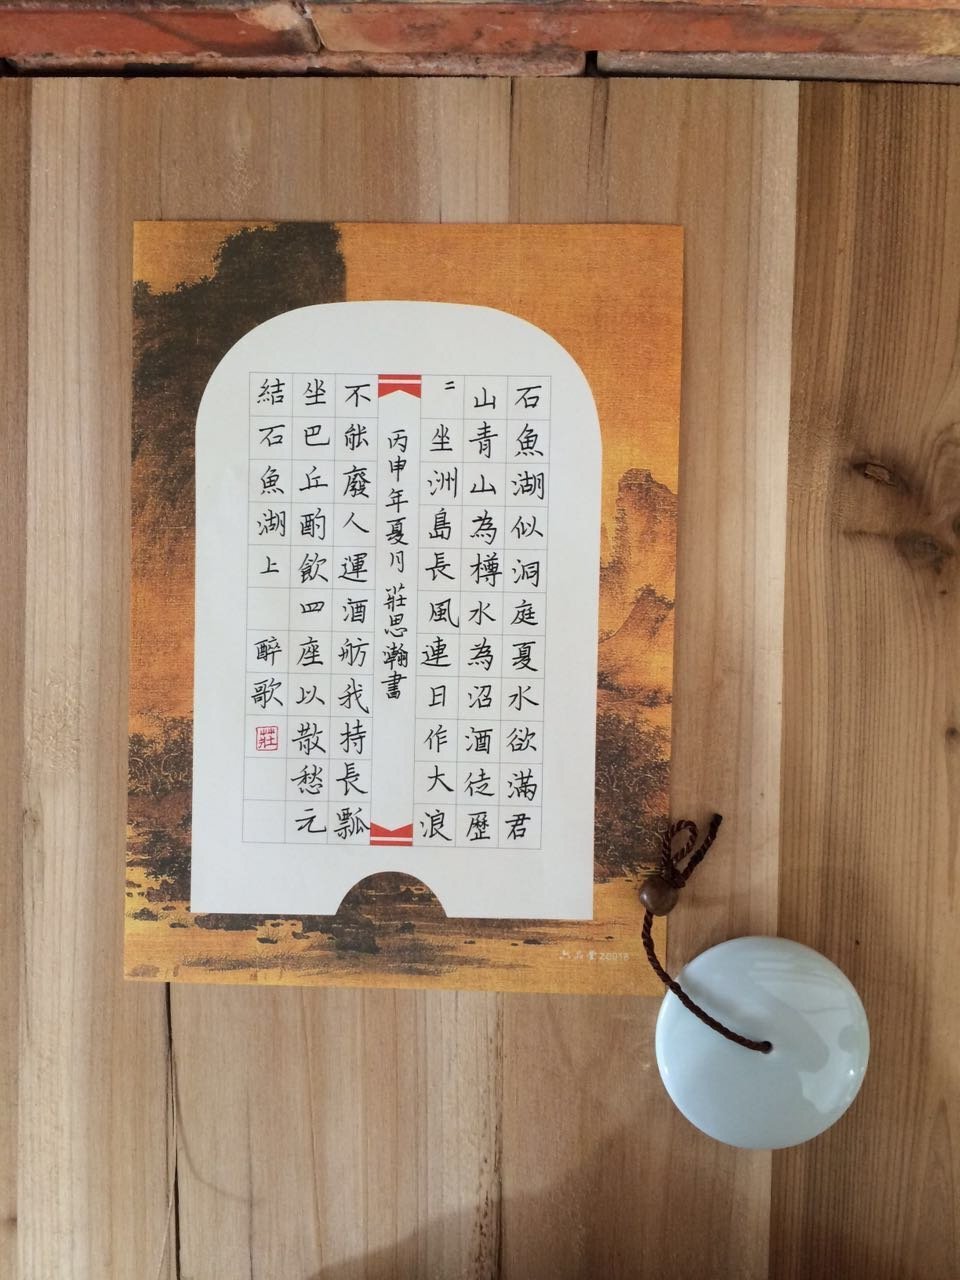 石魚湖似洞庭夏水欲滿君
山青山為樽水為沼酒徒歷
〻坐洲島長風連日作大浪
丙申年夏月莊思瀚書
不能廢人運酒舫我持長瓢
坐巴丘酌飲四座以散愁元
結石魚湖上醉歌
莊
六品堂Z0018